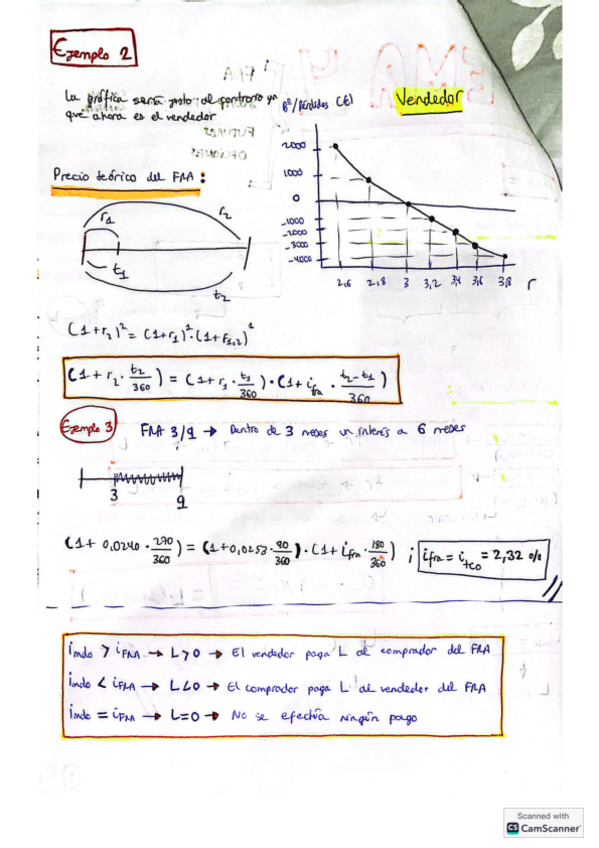 Ejemplo 2
La gráfica sería justo al contrario ya
que ahora es el vendedor
Bº/Pérdidas (€)
Vendedor
2000
1000
0
-1000
-2000
-3000
-4000
2,6 2,8 3 3,2 3,4 3,6 3,8 r
Precio teórico del FRA:
r1 r2
t1
t2
(1+r2)² = (1+r1)¹·(1+r1,2)¹
(1+r2·t2/360) = (1+r1·t1/360)·(1+ifra·t2-t1/360)
Ejemplo 3
FRA 3/9 → Dentro de 3 meses un interés a 6 meses
3 9
(1+0,0240·270/360) = (1+0,0253·90/360)·(1+ifra·180/360) ; ifra = itco = 2,32 %
imdo > iFRA → L>0 → El vendedor paga L al comprador del FRA
imdo < iFRA → L<0 → El comprador paga L al vendedor del FRA
imdo = iFRA → L=0 → No se efectúa ningún pago
Scanned with
CS CamScanner